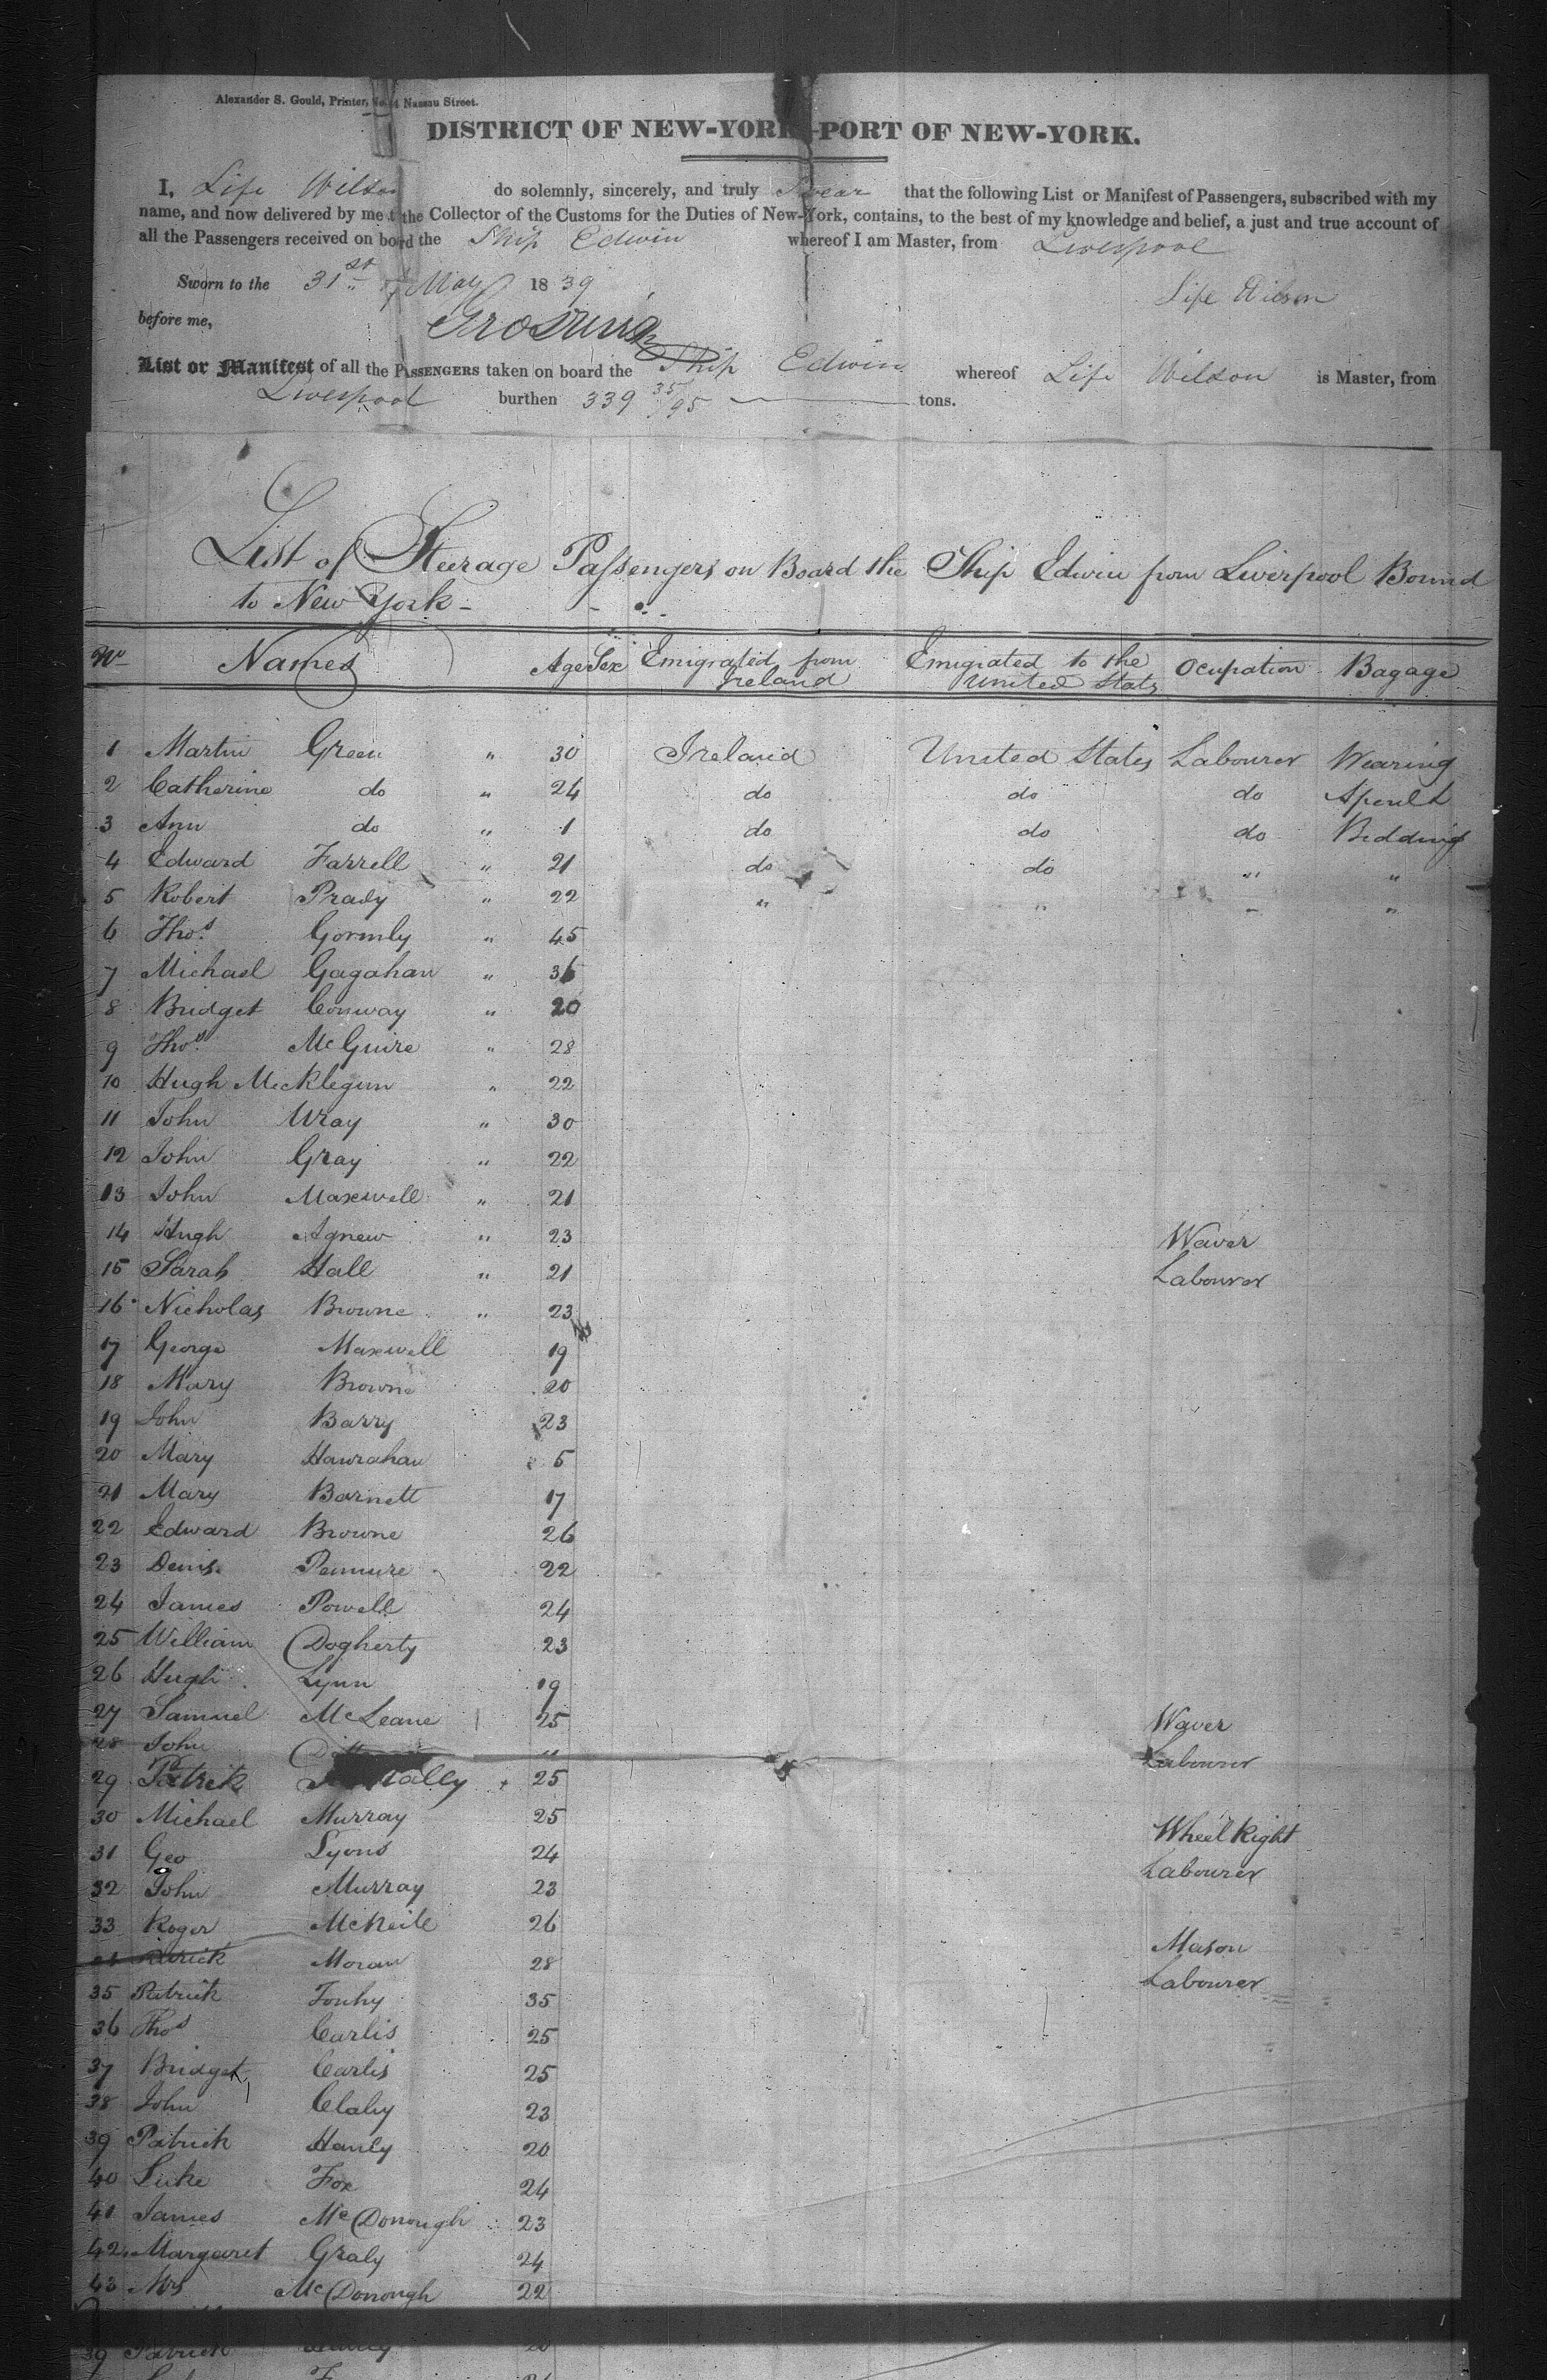 Alexander S. Gould, Printer, Nassau Street.
DISTRICT OF NEW-YORK-PORT OF NEW-YORK.
I, Life Wilson do solemnly, sincerely, and truly Swear that the following List or Manifest of Passengers, subscribed with my
name, and now delivered by me t the Collector of the Customs for the Duties of New-York, contains, to the best of my knowledge and belief, a just and true account of
all the Passengers received on bord the Ship Edwin whereof I am Master, from Liverpool
Sworn to the 31st of May 1839 Life Wilson
before me,
List or Manifest of all the PASSENGERS taken on board the Ship Edwin whereof Life Wilson is Master, from
Liverpool burthen 339 35/95 tons.
List of Steerage Passengers on Board the Ship Edwin from Liverpool Bound
to New York -
No Names Age Sex Emigrated from Ireland Emigrated to the United Stats Ocupation Bagage
1 Martin Green " 30 Ireland United States Labourer Wearing
2 Catherine do " 24 do do do
3 Ann do " 1 do do do Bedding
4 Edward Farrell " 21 do do " "
5 Robert Prady " 22 " " "
6 Thos Gormly " 45
7 Michael Gagahan " 36
8 Bridget Conway " 20
9 Thos McGuire " 28
10 Hugh " 22
11 John Wray " 30
12 John Gray " 22
13 John Maxwell " 21
14 Hugh Agnew " 23 Waver
15 Sarah Hall " 21 Labourer
16 Nicholas Browne " 23
17 George Maxwell 19
18 Mary Browne 20
19 John Barry 23
20 Mary Hanrahan 5
21 Mary Barnett 17
22 Edward Browne 26
23 Denis 22
24 James Powell 24
25 William Dogherty 23
26 Hugh Lynn 19
27 Samuel McLeane 25 Waver
28 John " Labourer
29 Patrick 25
30 Michael Murray 25 Wheel Right
31 Geo Lyons 24 Labourer
32 John Murray 23
33 Roger McNeile 26 Mason
Moran 28 Labourer
35 Patrick Fouhy 35
36 Thos Carlis 25
37 Bridget Carlis 25
38 John Clahy 23
39 Patrick Hanly 20
40 Luke Fox 24
41 James McDonough 23
42 Margaret Graly 24
43 Mrs McDonough 22
39 Patrick